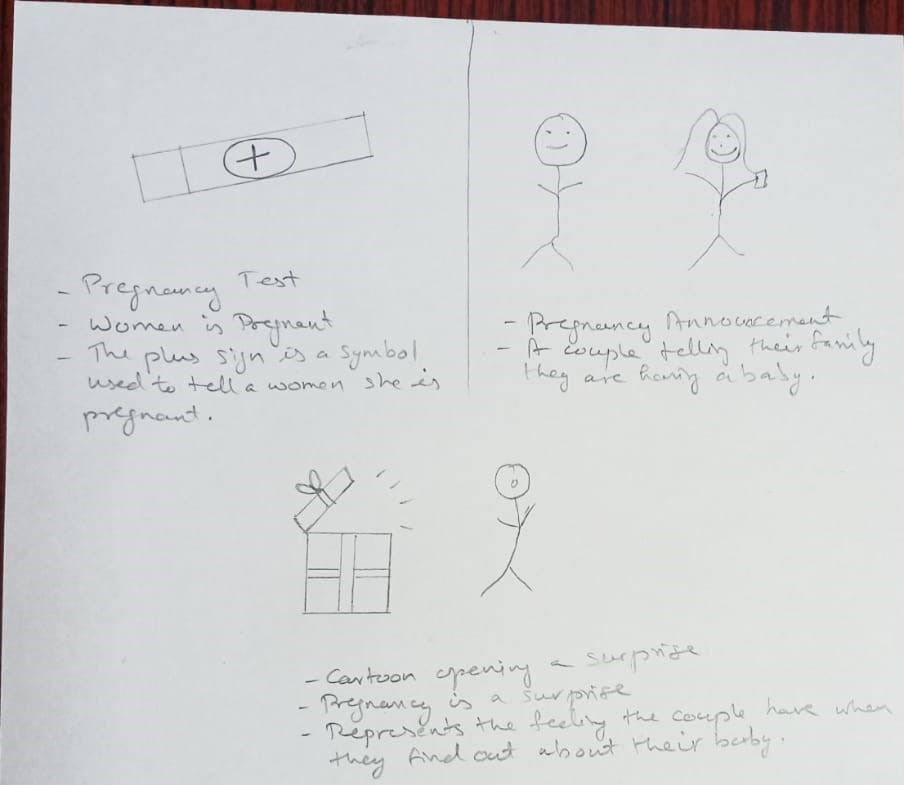 - Pregnancy Test
- Women is Pregnant
- The plus sign is a symbol
used to tell a women she is
pregnant.
- Pregnancy Announcement
- A couple telling their family
they are having a baby.
- Cartoon opening a surprise
- Pregnancy is a surprise
- Represents the feeling the couple have when
they find out about their baby.